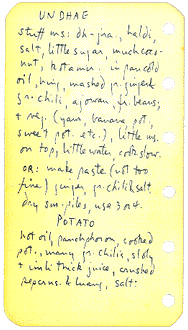 UNDHAE
stuff ms: dh-jra., haldi,
salt, little sugar, much coco-
nut, kotamir. in pan cold
oil, hing, mashed gr. ginger &
gr. chili, ajowan, beans;
+ veg. (yam, banana, pot,
sweet pot. etc.), little ms.
on top, little water, cook slow.
OR: make paste (not too
fine) ginger, gr. chili & salt,
dry, use 3 or 4.
POTATO
hot oil, panchphoron, cooked
pot., many gr. chilis, sldy
+ imli thick juice, crushed
salt.